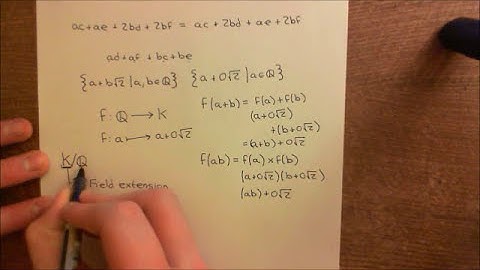 ac+ae+2bd+2bf = ac+2bd+ae+2bf
ad+af+bc+be
{a+b√2 | a,b∈ℚ} {a+0√2 | a∈ℚ}
f: ℚ → K
f: a ↦ a+0√2
f(a+b) = f(a)+f(b)
(a+0√2)
+(b+0√2)
=(a+b)+0√2
f(ab) = f(a)×f(b)
(a+0√2)(b+0√2)
(ab)+0√2
K/ℚ
Field extension